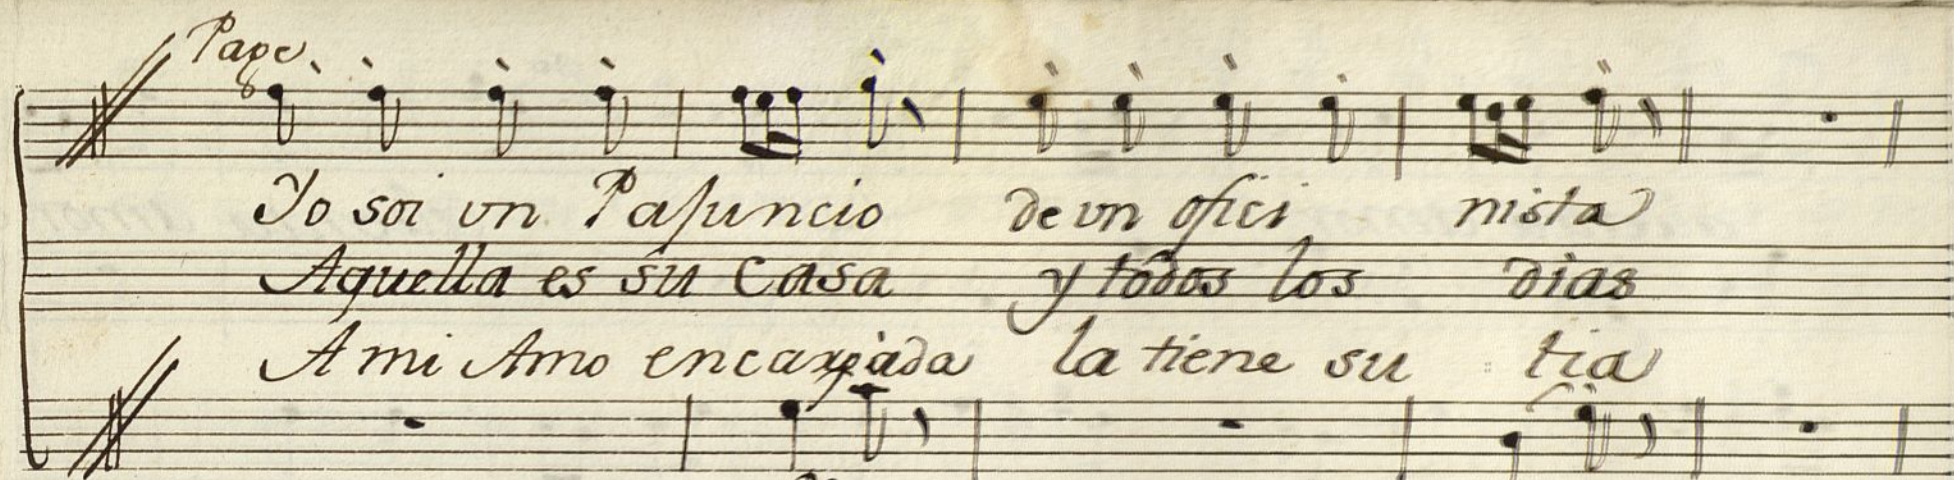 Page
Yo soi vn Pajuncio de vn ofici nista
Aquella es su Casa y todos los dias
A mi Amo encargada la tiene su tia